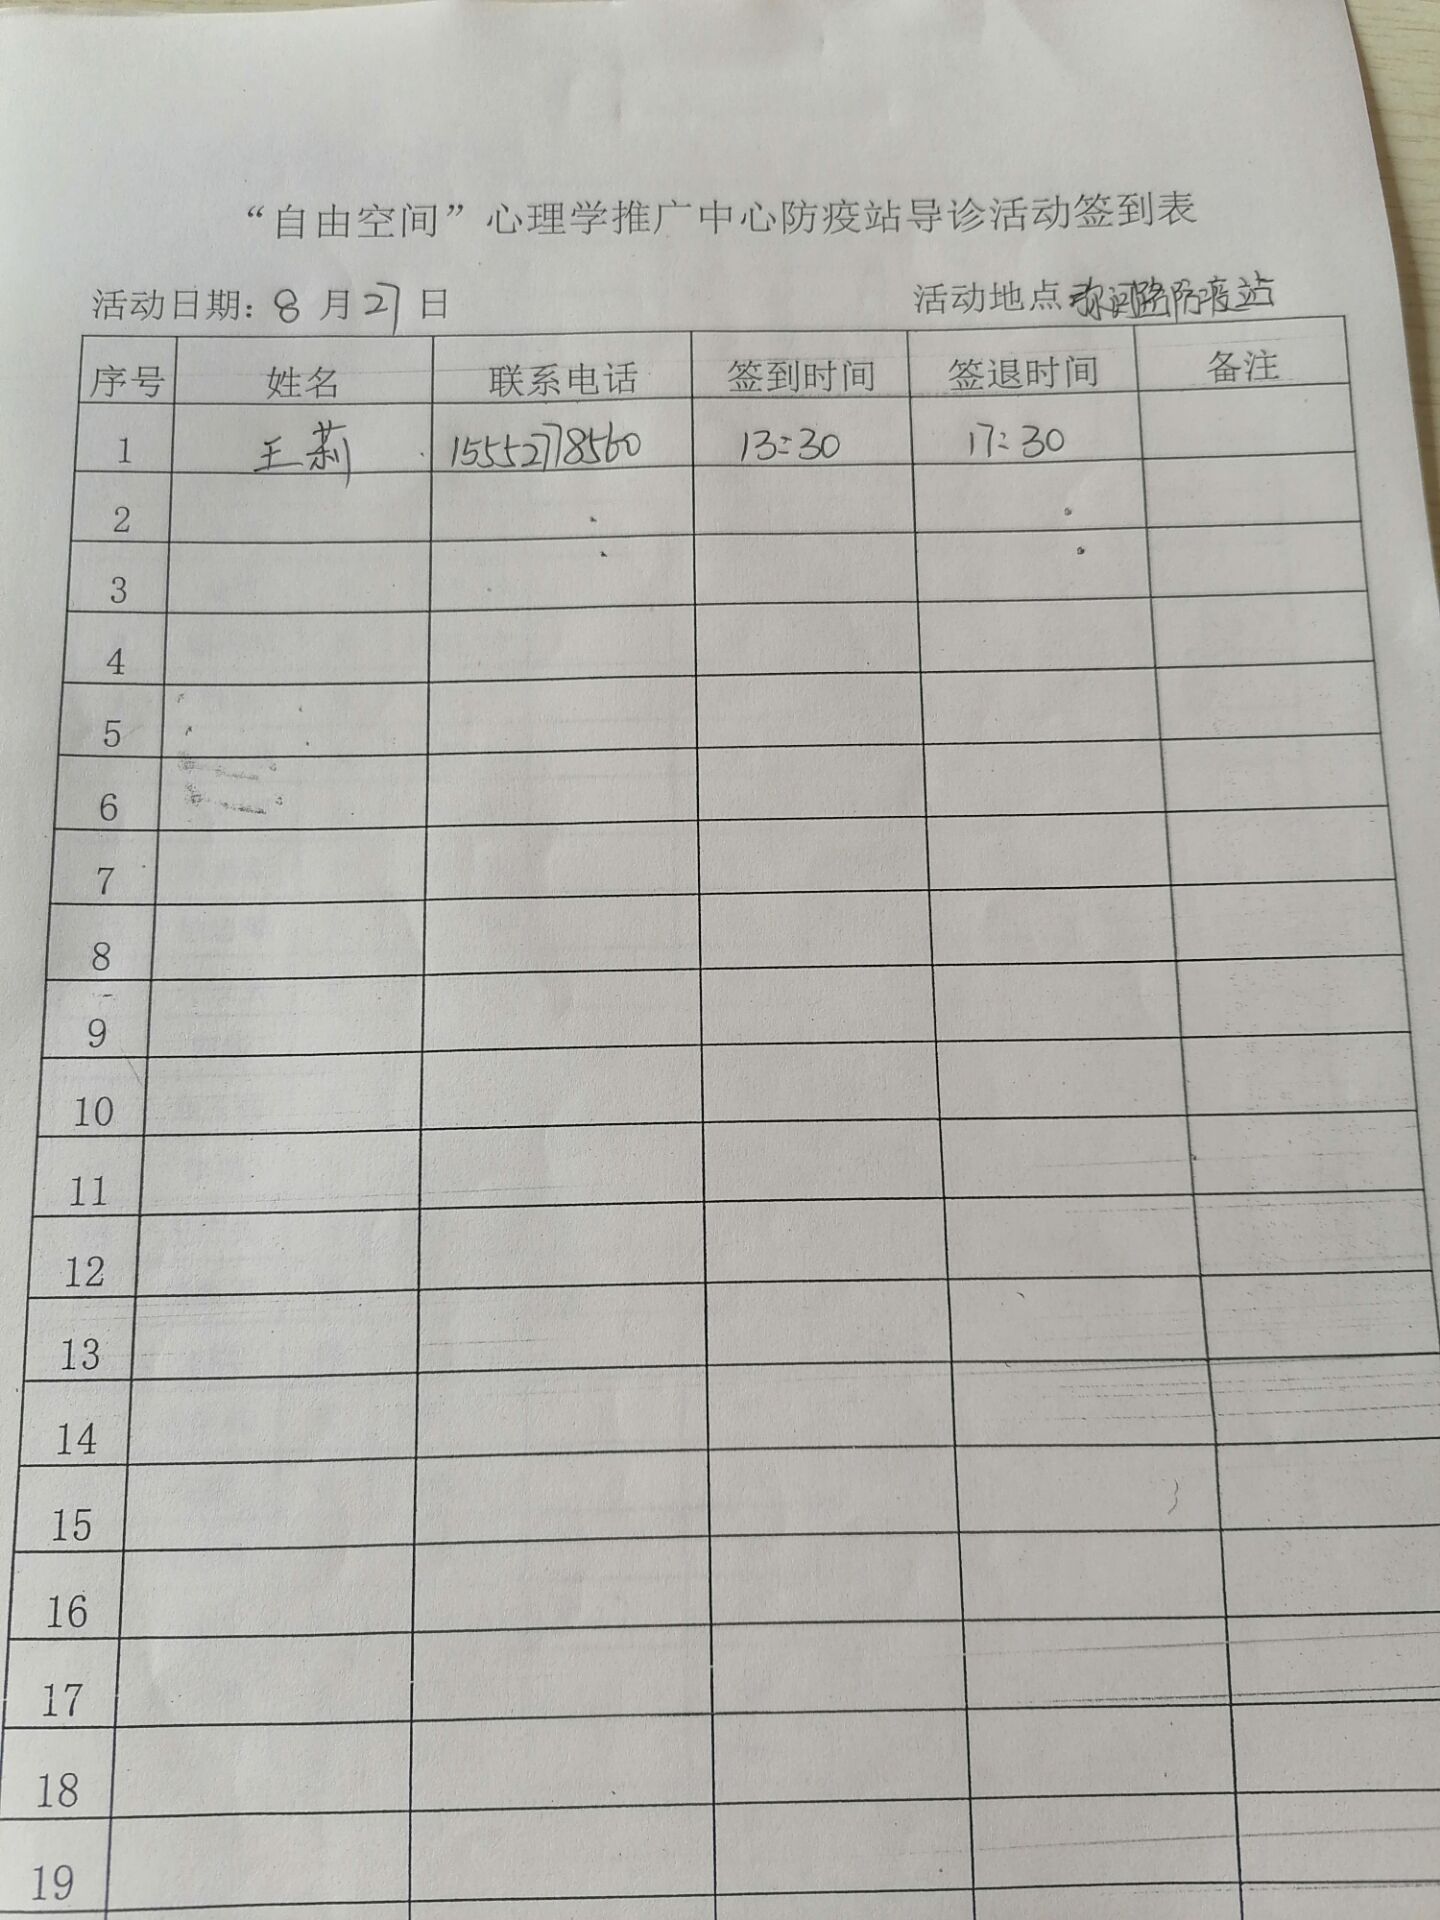 “自由空间”心理学推广中心防疫站导诊活动签到表
活动日期：8 月 27 日 活动地点 弥河路防疫站
序号 姓名 联系电话 签到时间 签退时间 备注
1 王莉 15552778560 13:30 17:30
2
3
4
5
6
7
8
9
10
11
12
13
14
15
16
17
18
19